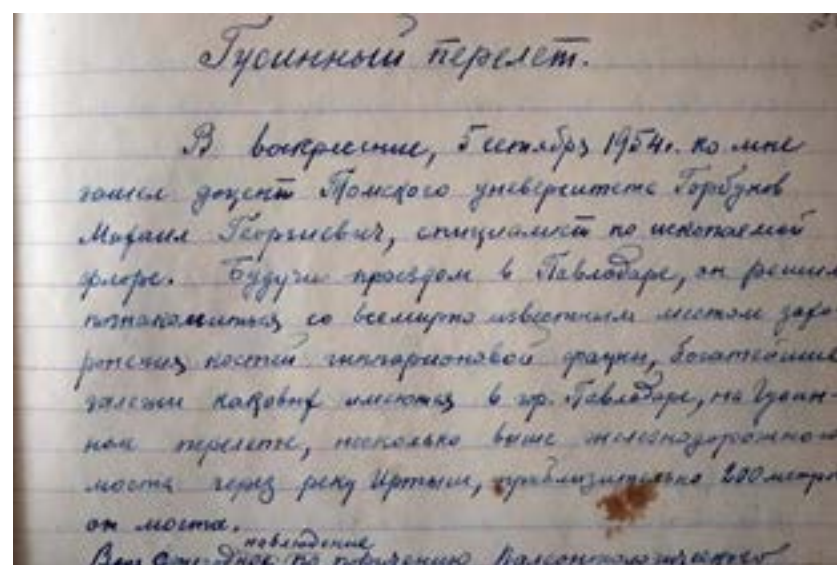 Гусинный перелет.
В воскресение, 5 сентября 1954г. ко мне
зашел доцент Томского университета Горбунов
Михаил Георгиевич, специалист по ископаемой
флоре. Будучи проездом в Павлодаре, он решил
познакомиться со всемирно известным местом захо-
ронения костей гиппарионовой фауны, богатейшие
залежи каковых имеются в гор. Павлодаре, на Гусин-
ном перелете, несколько выше железнодорожного
моста через реку Иртыш, приблизительно 200 метро
от моста.
наблюдение
по поручению Палеонтологического